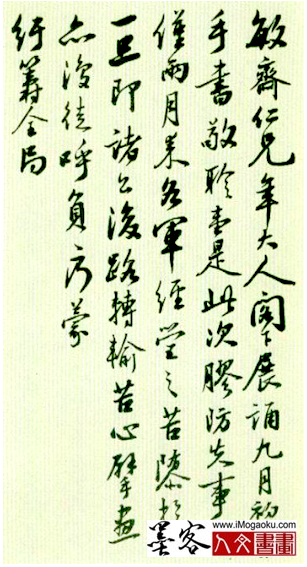 敏齋仁兄年大人閣下展誦九月初
手書敬聆壹是此次膠防失事
僅兩月來各軍經營之苦隳於
一旦即諸公後路轉輸苦心擘畫
亦復徒呼負方蒙
紆籌全局
www.iMogaoku.com
墨客 人文書畫